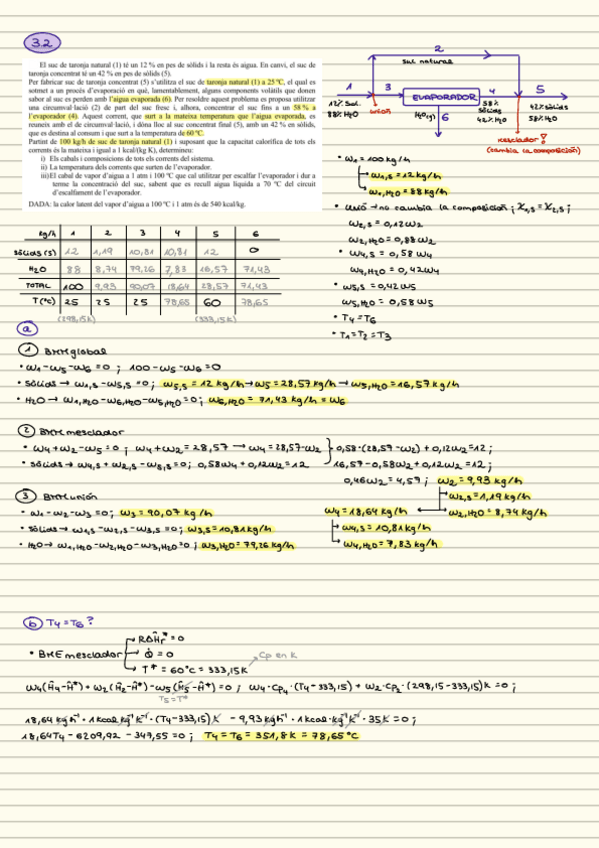 3.2
El suc de taronja natural (1) té un 12 % en pes de sòlids i la resta és aigua. En canvi, el suc de
taronja concentrat té un 42 % en pes de sòlids (5).
Per fabricar suc de taronja concentrat (5) s'utilitza el suc de taronja natural (1) a 25 ºC, el qual es
sotmet a un procés d'evaporació en què, lamentablement, alguns components volàtils que donen
sabor al suc es perden amb l'aigua evaporada (6). Per resoldre aquest problema es proposa utilitzar
una circumval·lació (2) de part del suc fresc i, alhora, concentrar el suc fins a un 58 % a
l'evaporador (4). Aquest corrent, que surt a la mateixa temperatura que l'aigua evaporada, es
reuneix amb el de circumval·lació, i dóna lloc al suc concentrat final (5), amb un 42 % en sòlids,
que es destina al consum i que surt a la temperatura de 60 ºC.
Partint de 100 kg/h de suc de taronja natural (1) i suposant que la capacitat calorífica de tots els
corrents és la mateixa i igual a 1 kcal/(kg K), determineu:
i) Els cabals i composicions de tots els corrents del sistema.
ii) La temperatura dels corrents que surten de l'evaporador.
iii) El cabal de vapor d'aigua a 1 atm i 100 ºC que cal utilitzar per escalfar l'evaporador i dur a
terme la concentració del suc, sabent que es recull aigua líquida a 70 ºC del circuit
d'escalfament de l'evaporador.
DADA: la calor latent del vapor d'aigua a 100 ºC i 1 atm és de 540 kcal/kg.
2
suc natural
1 3 4 5
EVAPORADOR
12% Sol.
88% H2O
unión
H2O(g) 6
58%
sólids
42% H2O
42% sòlids
58% H2O
mesclador!
(cambia la composición)
• w1 = 100 kg/h
w1,s = 12 kg/h
w1,H2O = 88 kg/h
• unió → no cambia la composición; x1,s = x2,s;
w2,s = 0,12w2
w2,H2O = 0,88w2
• w4,s = 0,58 w4
w4,H2O = 0,42w4
• w5,s = 0,42w5
w5,H2O = 0,58w5
• T4 = T6
• T1 = T2 = T3
kg/h 1 2 3 4 5 6
sòlids (s) 12 1,19 10,81 10,81 12 0
H2O 88 8,74 79,26 7,83 16,57 71,43
TOTAL 100 9,93 90,07 18,64 28,57 71,43
T (ºC) 25 25 25 78,65 60 78,65
(298,15K) (333,15K)
a
1 BMM global
• w1 - w5 - w6 = 0 ; 100 - w5 - w6 = 0
• sòlids → w1,s - w5,s = 0; w5,s = 12 kg/h → w5 = 28,57 kg/h → w5,H2O = 16,57 kg/h
• H2O → w1,H2O - w6,H2O - w5,H2O = 0; w6,H2O = 71,43 kg/h = w6
2 BMM mesclador
• w4 + w2 - w5 = 0 ; w4 + w2 = 28,57 → w4 = 28,57 - w2 } 0,58·(28,57 - w2) + 0,12w2 = 12 ;
• sòlids → w4,s + w2,s - w5,s = 0; 0,58w4 + 0,12w2 = 12 16,57 - 0,58w2 + 0,12w2 = 12 ;
0,46w2 = 4,57 ; w2 = 9,93 kg/h
w2,s = 1,19 kg/h
3 BMM unión
• w1 - w2 - w3 = 0; w3 = 90,07 kg/h w4 = 18,64 kg/h w2,H2O = 8,74 kg/h
• sòlids → w1,s - w2,s - w3,s = 0; w3,s = 10,81 kg/h w4,s = 10,81 kg/h
• H2O → w1,H2O - w2,H2O - w3,H2O = 0; w3,H2O = 79,26 kg/h w4,H2O = 7,83 kg/h
b T4 = T6?
RΔHr* = 0
• BME mesclador Q̇ = 0
T* = 60ºC = 333,15K Cp en K
w4(Ĥ4-Ĥ*) + w2(Ĥ2-Ĥ*) - w5(Ĥ5-Ĥ*) = 0 ; w4·Cp4·(T4-333,15) + w2·Cp2·(298,15-333,15)K = 0 ;
T5 = T*
18,64 kg h⁻¹ · 1 kcal kg⁻¹K⁻¹ · (T4-333,15)K - 9,93 kg h⁻¹ · 1 kcal·kg⁻¹K⁻¹ · 35K = 0 ;
18,64T4 - 6209,92 - 347,55 = 0 ; T4 = T6 = 351,8K = 78,65ºC